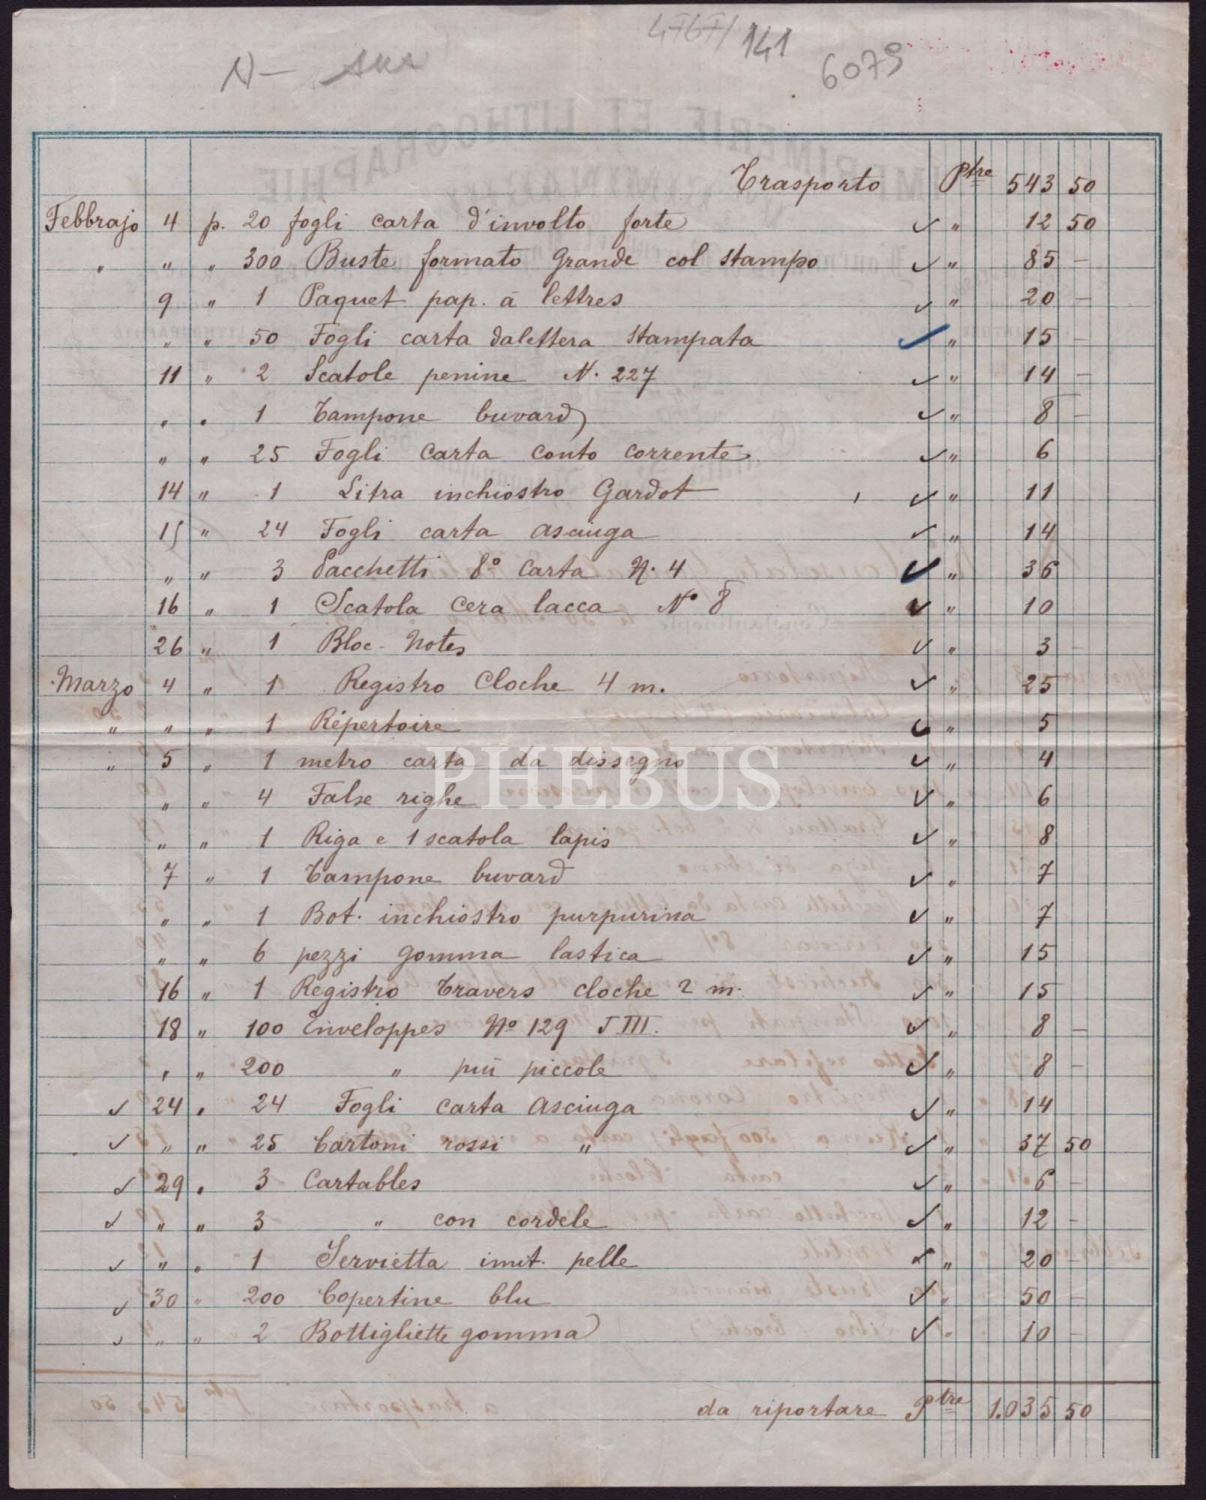 4767/ 141
6079
N-
Trasporto Ptre 543 50
Febbrajo 4 p. 20 fogli carta d'involto forte ✓ " 12 50
" " " 300 Buste formato Grande col stampo ✓ " 85 —
9 " 1 Paquet pap. à lettres ✓ " 20 —
" " 50 Fogli carta dalettera stampata ✓ " 15 —
11 " 2 Scatole penine N. 227 ✓ " 14 —
" " 1 Tampone buvard ✓ " 8 —
" " 25 Fogli carta conto corrente ✓ " 6
14 " 1 Litra inchiostro Gardot ✓ " 11
15 " 24 Fogli carta asciuga ✓ " 14
" " 3 Pacchetti 8° carta N. 4 ✓ " 36
16 " 1 Scatola cera lacca N° 8 ✓ " 10
26 " 1 Bloc-Notes ✓ " 3 —
Marzo 4 " 1 Registro Cloche 4 m. ✓ " 25
" " " 1 Répertoire ✓ " 5
" 5 " 1 metro carta da dissegno ✓ " 4
PHEBUS
" " 4 False righe ✓ " 6
" " 1 Riga e 1 scatola lapis ✓ " 8
7 " 1 Tampone buvard ✓ " 7
" " 1 Bot. inchiostro purpurina ✓ " 7
" " 6 pezzi gomma lastica ✓ " 15
16 " 1 Registro Travers cloche 2 m. ✓ " 15
18 " 100 Enveloppes N° 129 J III. ✓ " 8 —
" " 200 " più piccole ✓ " 8 —
✓ 24 " 24 Fogli carta asciuga ✓ " 14
✓ " " 25 Cartoni rossi " ✓ " 37 50
✓ 29 " 3 Cartables ✓ " 6 —
✓ " " 3 " con cordele ✓ " 12 —
✓ " " 1 Servietta imit. pelle ✓ " 20 —
✓ 30 " 200 Copertine blu ✓ " 50 —
✓ " " 2 Bottigliette gomma ✓ " 10 —
da riportare Ptre 1.035 50